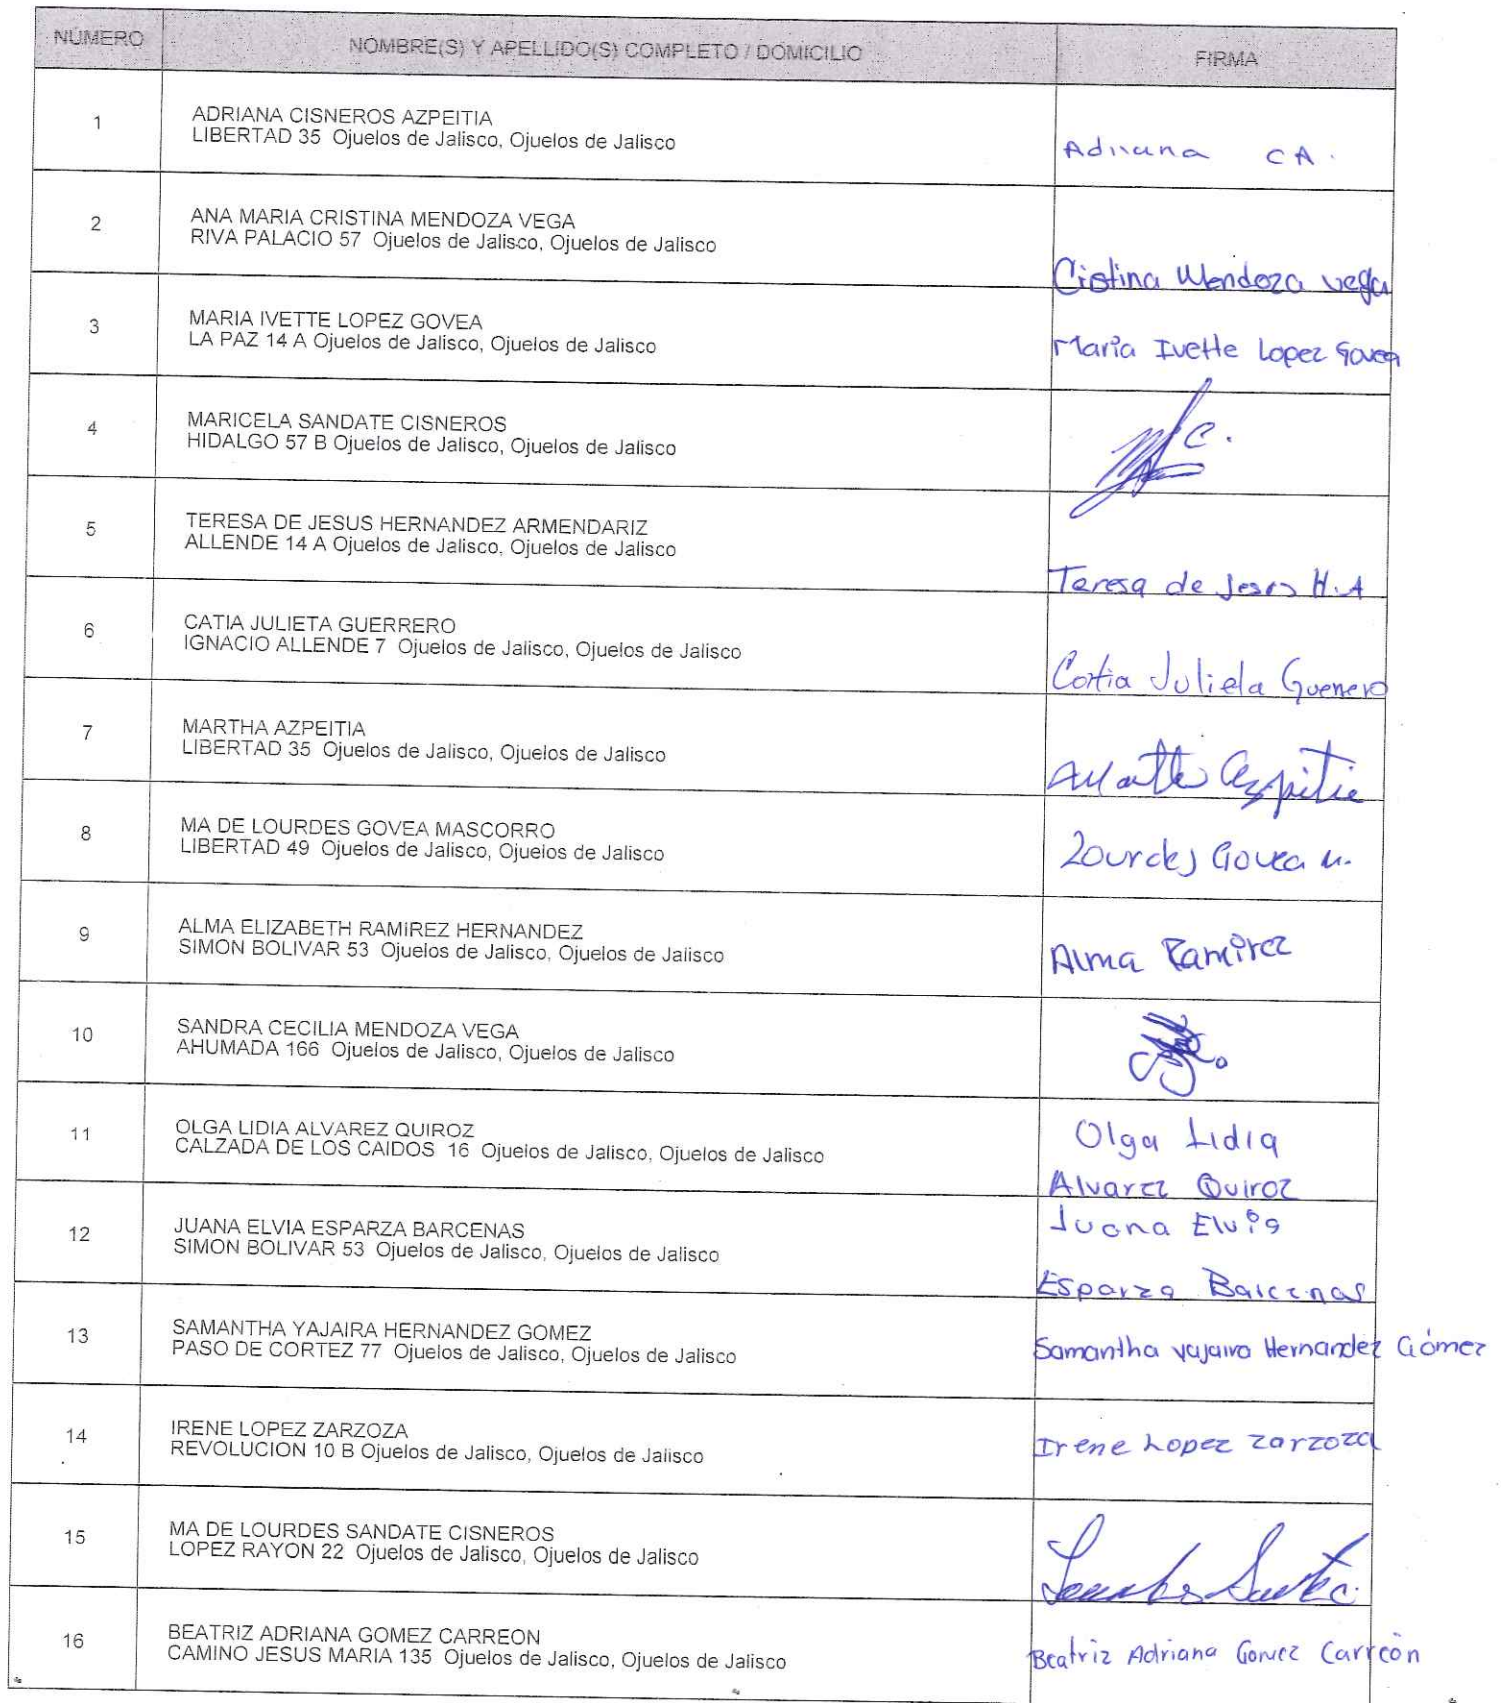 NÚMERO NOMBRE(S) Y APELLIDO(S) COMPLETO / DOMICILIO FIRMA
1 ADRIANA CISNEROS AZPEITIA
LIBERTAD 35 Ojuelos de Jalisco, Ojuelos de Jalisco
Adriana CA.
2 ANA MARIA CRISTINA MENDOZA VEGA
RIVA PALACIO 57 Ojuelos de Jalisco, Ojuelos de Jalisco
Cistina Mendoza vega
3 MARIA IVETTE LOPEZ GOVEA
LA PAZ 14 A Ojuelos de Jalisco, Ojuelos de Jalisco
Maria Ivette Lopez Govea
4 MARICELA SANDATE CISNEROS
HIDALGO 57 B Ojuelos de Jalisco, Ojuelos de Jalisco
5 TERESA DE JESUS HERNANDEZ ARMENDARIZ
ALLENDE 14 A Ojuelos de Jalisco, Ojuelos de Jalisco
Teresa de Jesus H.A
6 CATIA JULIETA GUERRERO
IGNACIO ALLENDE 7 Ojuelos de Jalisco, Ojuelos de Jalisco
Catia Julieta Guerrero
7 MARTHA AZPEITIA
LIBERTAD 35 Ojuelos de Jalisco, Ojuelos de Jalisco
8 MA DE LOURDES GOVEA MASCORRO
LIBERTAD 49 Ojuelos de Jalisco, Ojuelos de Jalisco
Lourdes Govea M.
9 ALMA ELIZABETH RAMIREZ HERNANDEZ
SIMON BOLIVAR 53 Ojuelos de Jalisco, Ojuelos de Jalisco
Alma Ramirez
10 SANDRA CECILIA MENDOZA VEGA
AHUMADA 166 Ojuelos de Jalisco, Ojuelos de Jalisco
11 OLGA LIDIA ALVAREZ QUIROZ
CALZADA DE LOS CAIDOS 16 Ojuelos de Jalisco, Ojuelos de Jalisco
Olga Lidia
Alvarez Quiroz
12 JUANA ELVIA ESPARZA BARCENAS
SIMON BOLIVAR 53 Ojuelos de Jalisco, Ojuelos de Jalisco
Juana Elvia
Esparza Barcenas
13 SAMANTHA YAJAIRA HERNANDEZ GOMEZ
PASO DE CORTEZ 77 Ojuelos de Jalisco, Ojuelos de Jalisco
Samantha Yajaira Hernandez Gómez
14 IRENE LOPEZ ZARZOZA
REVOLUCION 10 B Ojuelos de Jalisco, Ojuelos de Jalisco
Irene Lopez Zarzoza
15 MA DE LOURDES SANDATE CISNEROS
LOPEZ RAYON 22 Ojuelos de Jalisco, Ojuelos de Jalisco
16 BEATRIZ ADRIANA GOMEZ CARREON
CAMINO JESUS MARIA 135 Ojuelos de Jalisco, Ojuelos de Jalisco
Beatriz Adriana Gomez Carreón